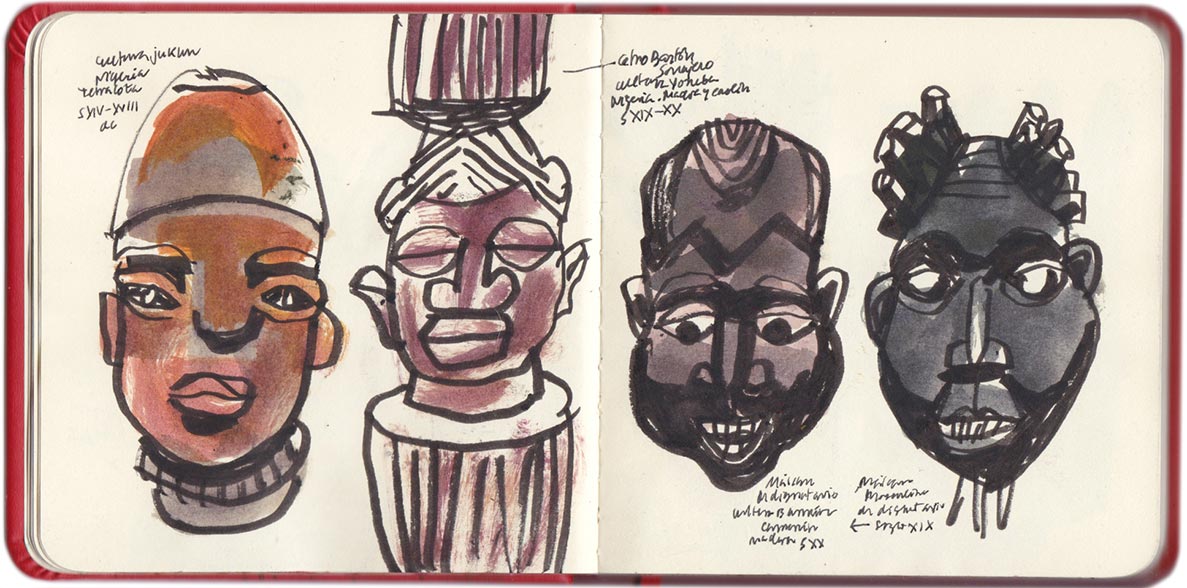 cultura jukun
Nigeria
terracota
SXIV-XVIII
dc
Cetro Bastón
Sonajero
cultura Yoruba
Nigeria. Madera y caolín
S XIX-XX
Máscara
dignatario
cultura Bamún
Camerún
madera SXX
Máscara
Masculina
de dignatario
← Siglo XIX